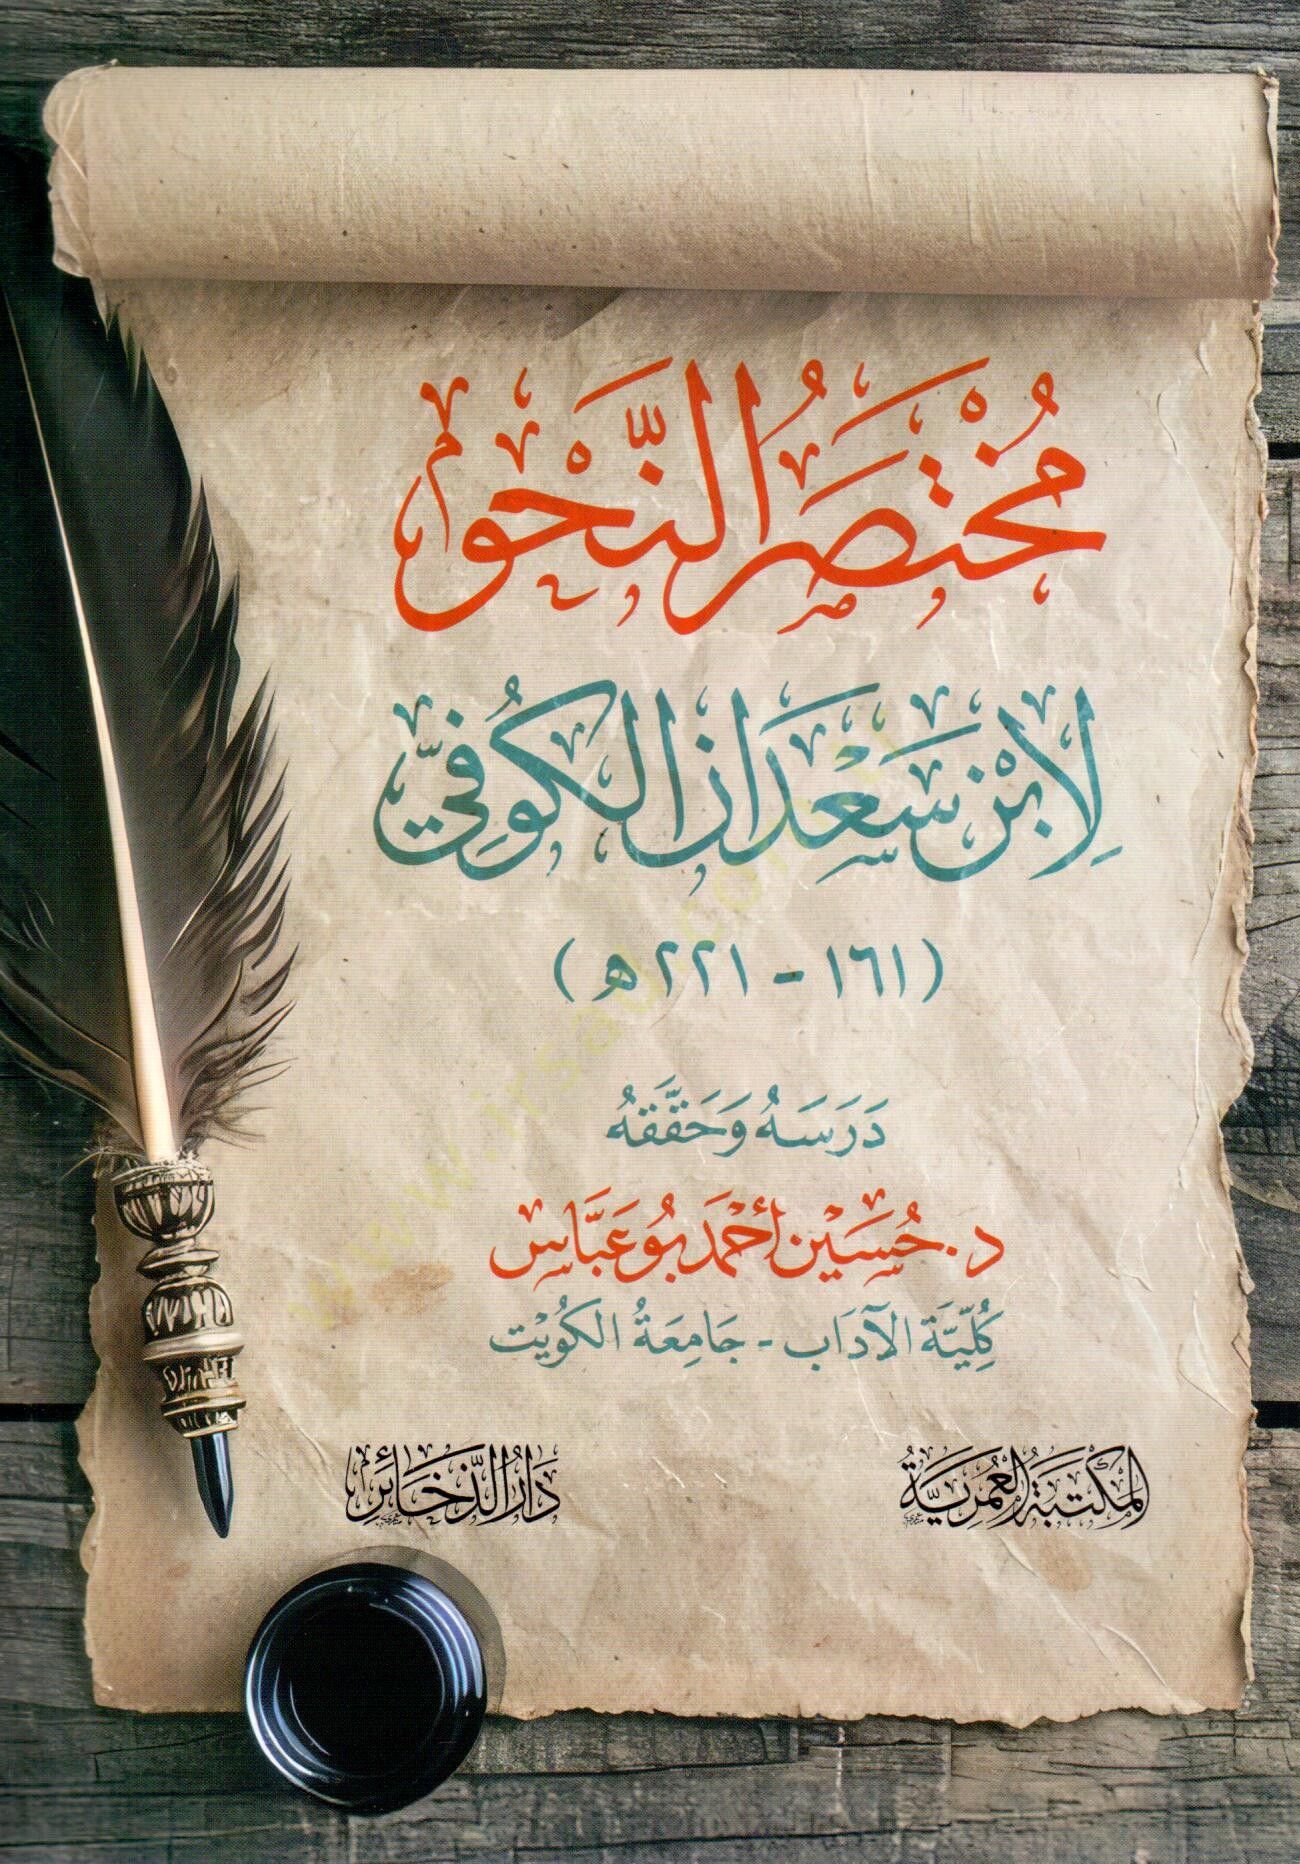 مُخْتَصَرُ النَّحْوِ
لِابْنِ سَعْدَانَ الْكُوفِيّ
(١٦١ - ٢٢١هـ)
دَرَسَهُ وَحَقَّقَهُ
د. حُسَيْن أَحْمَد بُو عَبَّاس
كُلِّيَّة الآدَاب - جَامِعَةُ الكُوَيْت
المَكْتَبَةُ العُمَرِيَّةُ
دَارُ الذَّخَائِرِ